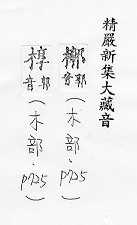 精嚴新集大藏音
槨音郭(木部、p925)
椁音郭(木部、p925)